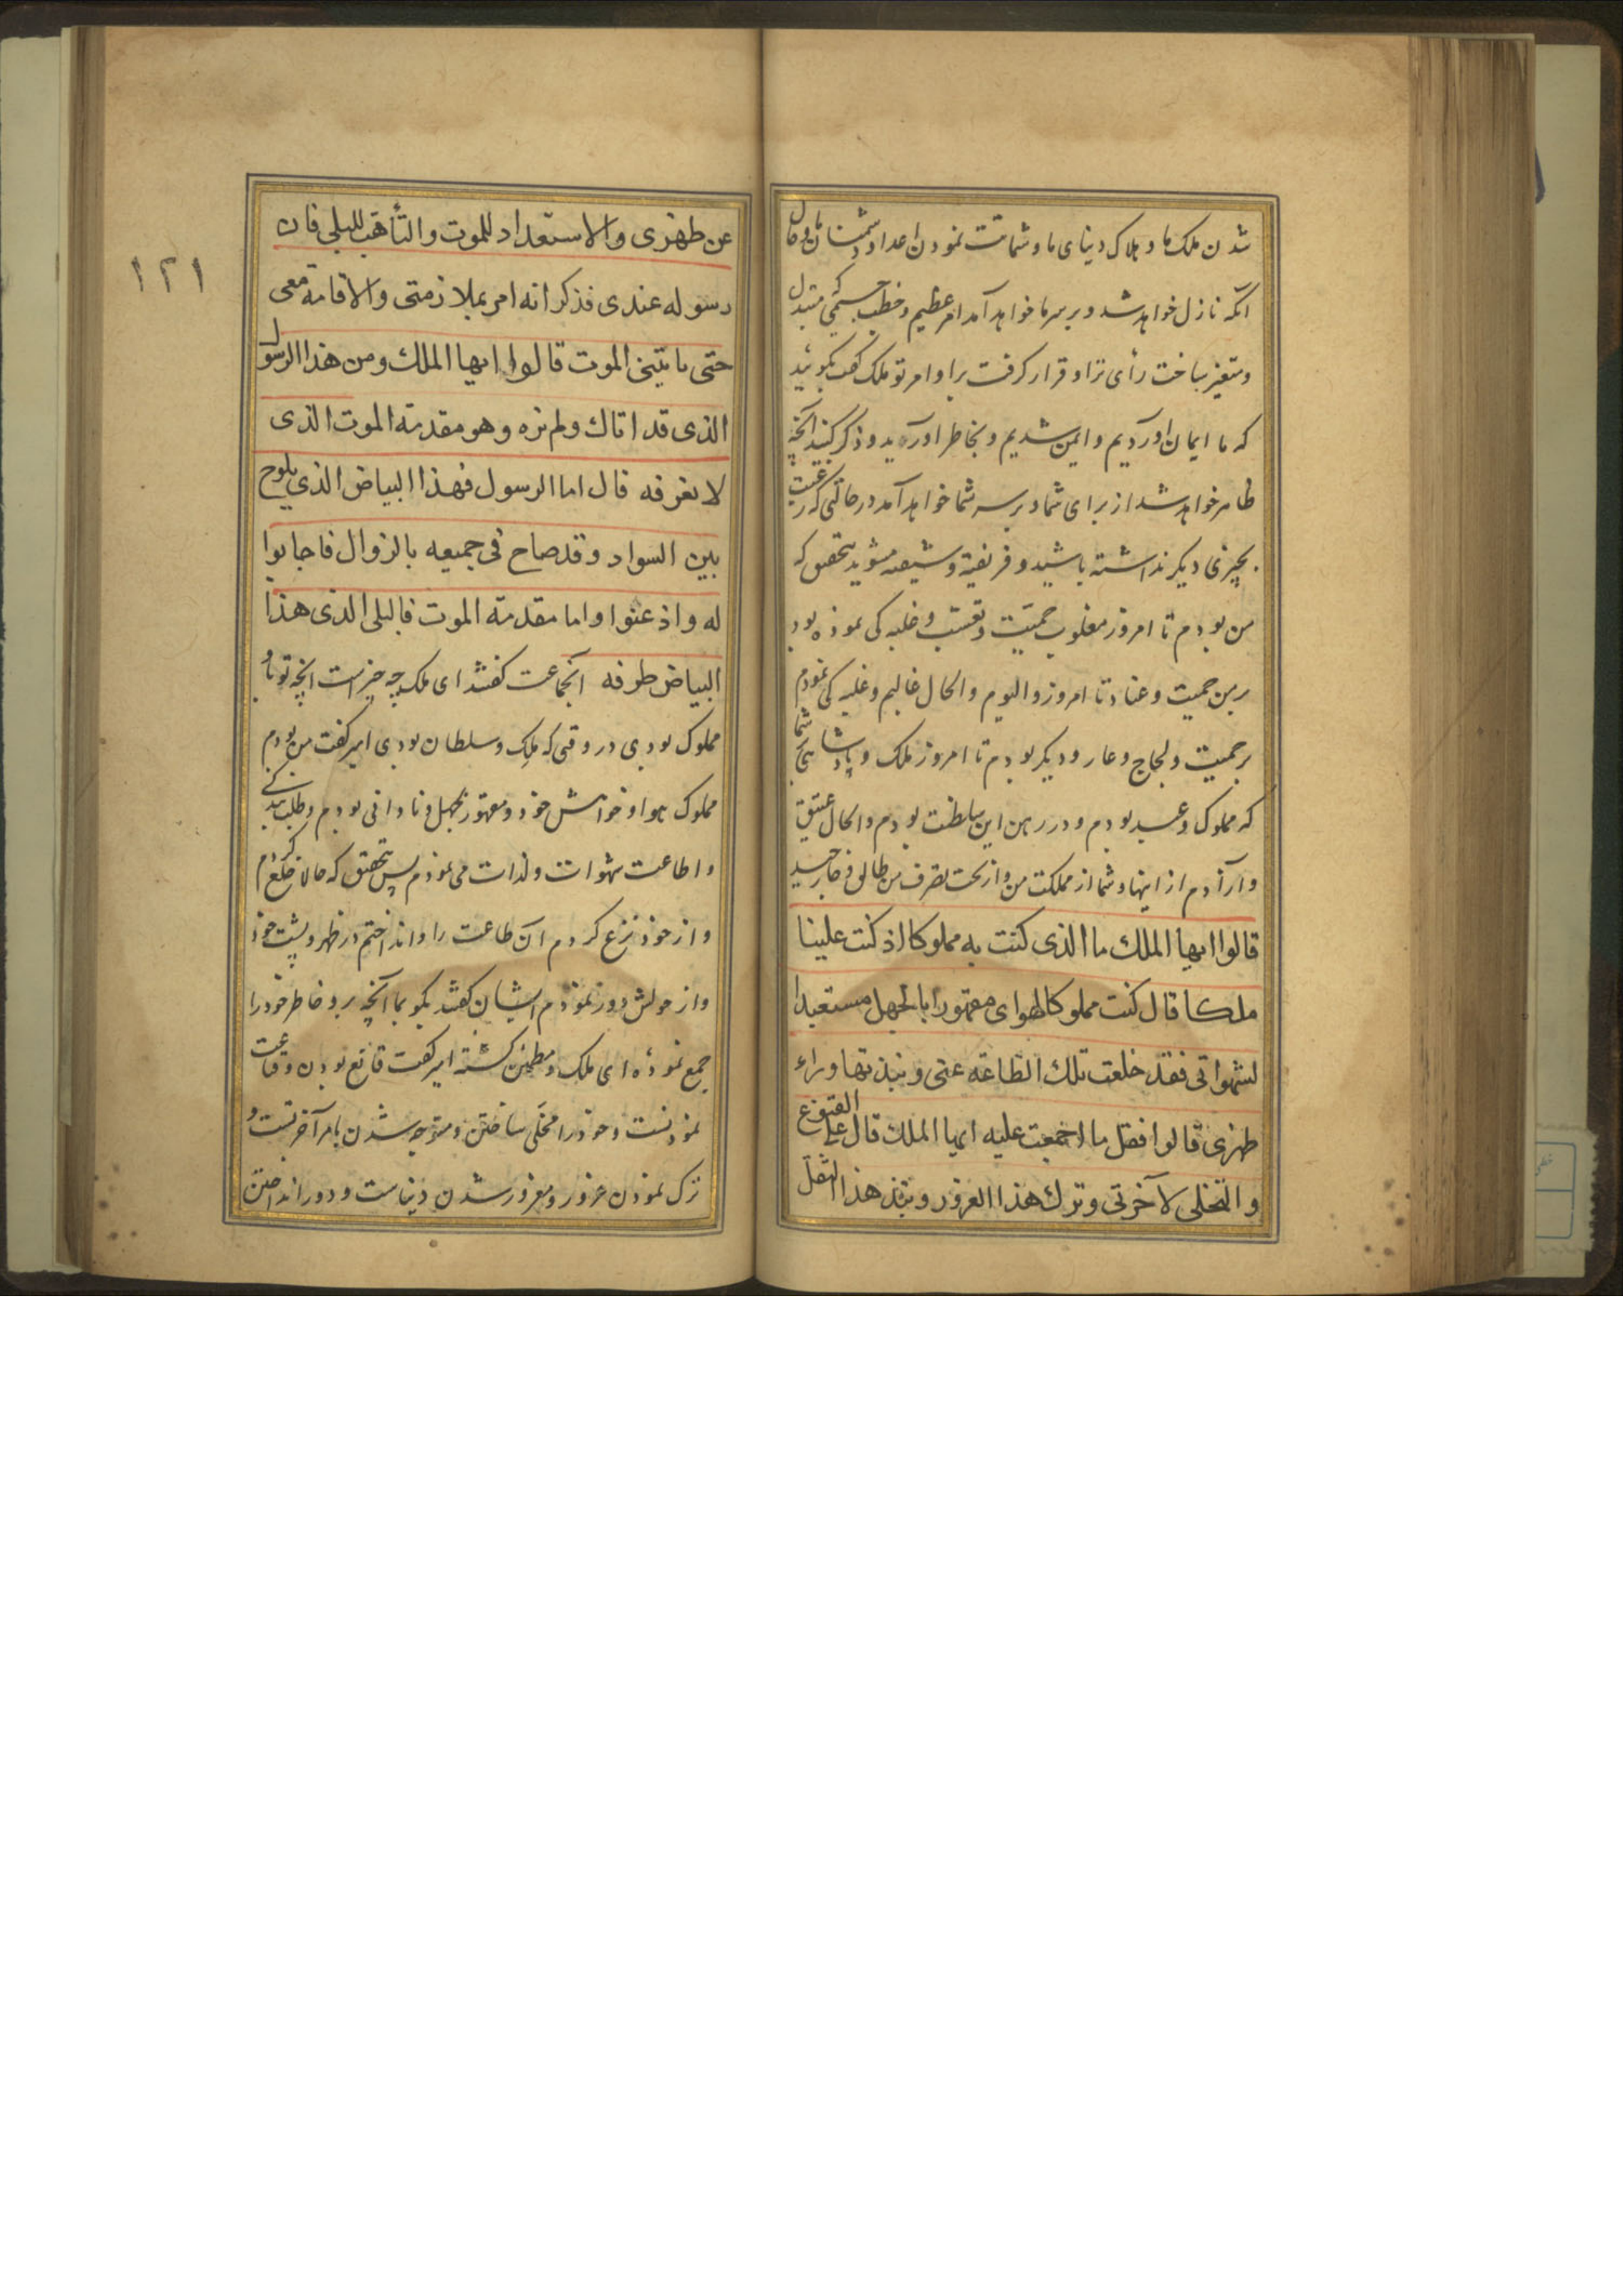 شدن ملک ما و هلاک دنیای ما و شماتت نمودن اعدا و دشمنان ما و حال
آنکه نازل خواهد شد و بر سر ما خواهد آمد امر عظیم و خطب جسیمی که متبدل
و متغیر ساخت رأی ترا و قرار گرفت برا و امر تو ملک گفت بگوئید
که ما ایمان آوردیم و ایمن شدیم و بخاطر آورید و ذکر کنید آنچه
ظاهر خواهد شد از برای شما و بر سر شما خواهد آمد در حالتی که رغبت
بچیزی دیگر نداشته باشید و فریفته و شیفته مشوید بتحقیق که
من بودم تا امروز مغلوب حمیت و تعصب و غلبه کی نموده بود
بر من حمیت و عناد تا امروز و الیوم و الحال غالبم و غلبه کی نمودم
بر حمیت و لجاج و عار و دیگر بودم تا امروز ملک و پادشاهی شما
که مملوک و عبد بودم و در رهن این سلطنت بودم و الحال عتیق
و آزادم از اینها و شما از مملکت من و از تحت تصرف من
قالوا ایها الملك ما الذی کنت به مملوکا اذ کنت علینا
ملکا قال کنت مملوکا لهوای مقهورا بالجهل مستعبدا
لشهواتی فقد خلعت تلك الطاعة عنی و نبذتها وراء
ظهری قالوا فقل ما اجمعت علیه ایها الملك قال علی القنوع
و التخلی لآخرتی و ترك هذا الغرور و نبذ هذا الثقل
١٢١
عن ظهری و الاستعداد للموت و التأهب للبلی فان
رسوله عندی فذکر انه امر بملازمتی و الاقامة معی
حتی یاتینی الموت قالوا ایها الملك و من هذا الرسول
الذی قد اتاك و لم نره و هو مقدمة الموت الذی
لا نعرفه قال اما الرسول فهذا البیاض الذی یلوح
بین السواد و قد صاح فی جمیعه بالزوال فاجابوا
له و اذعنوا و اما مقدمة الموت فالبلی الذی هذا
البیاض طرفه آنجماعت گفتند ای ملک چه چیز است آنچه تو باو
مملوک بودی در وقتی که ملک و سلطان بودی امیر گفت من بودم
مملوک هوا و خواهش خود و مقهور بجهل و نادانی بودم و طلب بندگی
و اطاعت شهوات و لذات می نمودم پس بتحقیق که حالا خلع کردم
و از خود نزع کردم آن طاعت را و انداختم در ظهر و پشت خود
و از حولش دور نمودم ایشان گفتند بگو بما آنچه بر و خاطر خود را
جمع نموده ای ملک و مطمئن گشته امیر گفت قانع بودن و قناعت
نمودنست و خود را مخلی ساختن و متوجه شدن بامر آخرتست و
ترک نمودن غرور و مغرور شدن دنیاست و دور انداختن